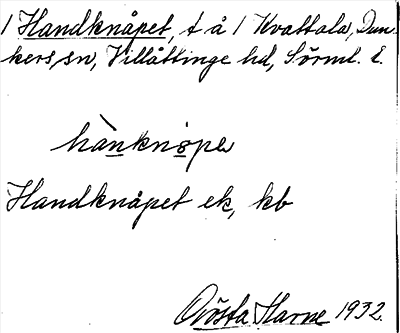 1 Handknåpet, t å 1 Kvattala, Dun-
kers, sn, Villåttinge hd, Sörml. l.
hànknåpe
Handknåpet ek, kb
Gösta Harne 1932.